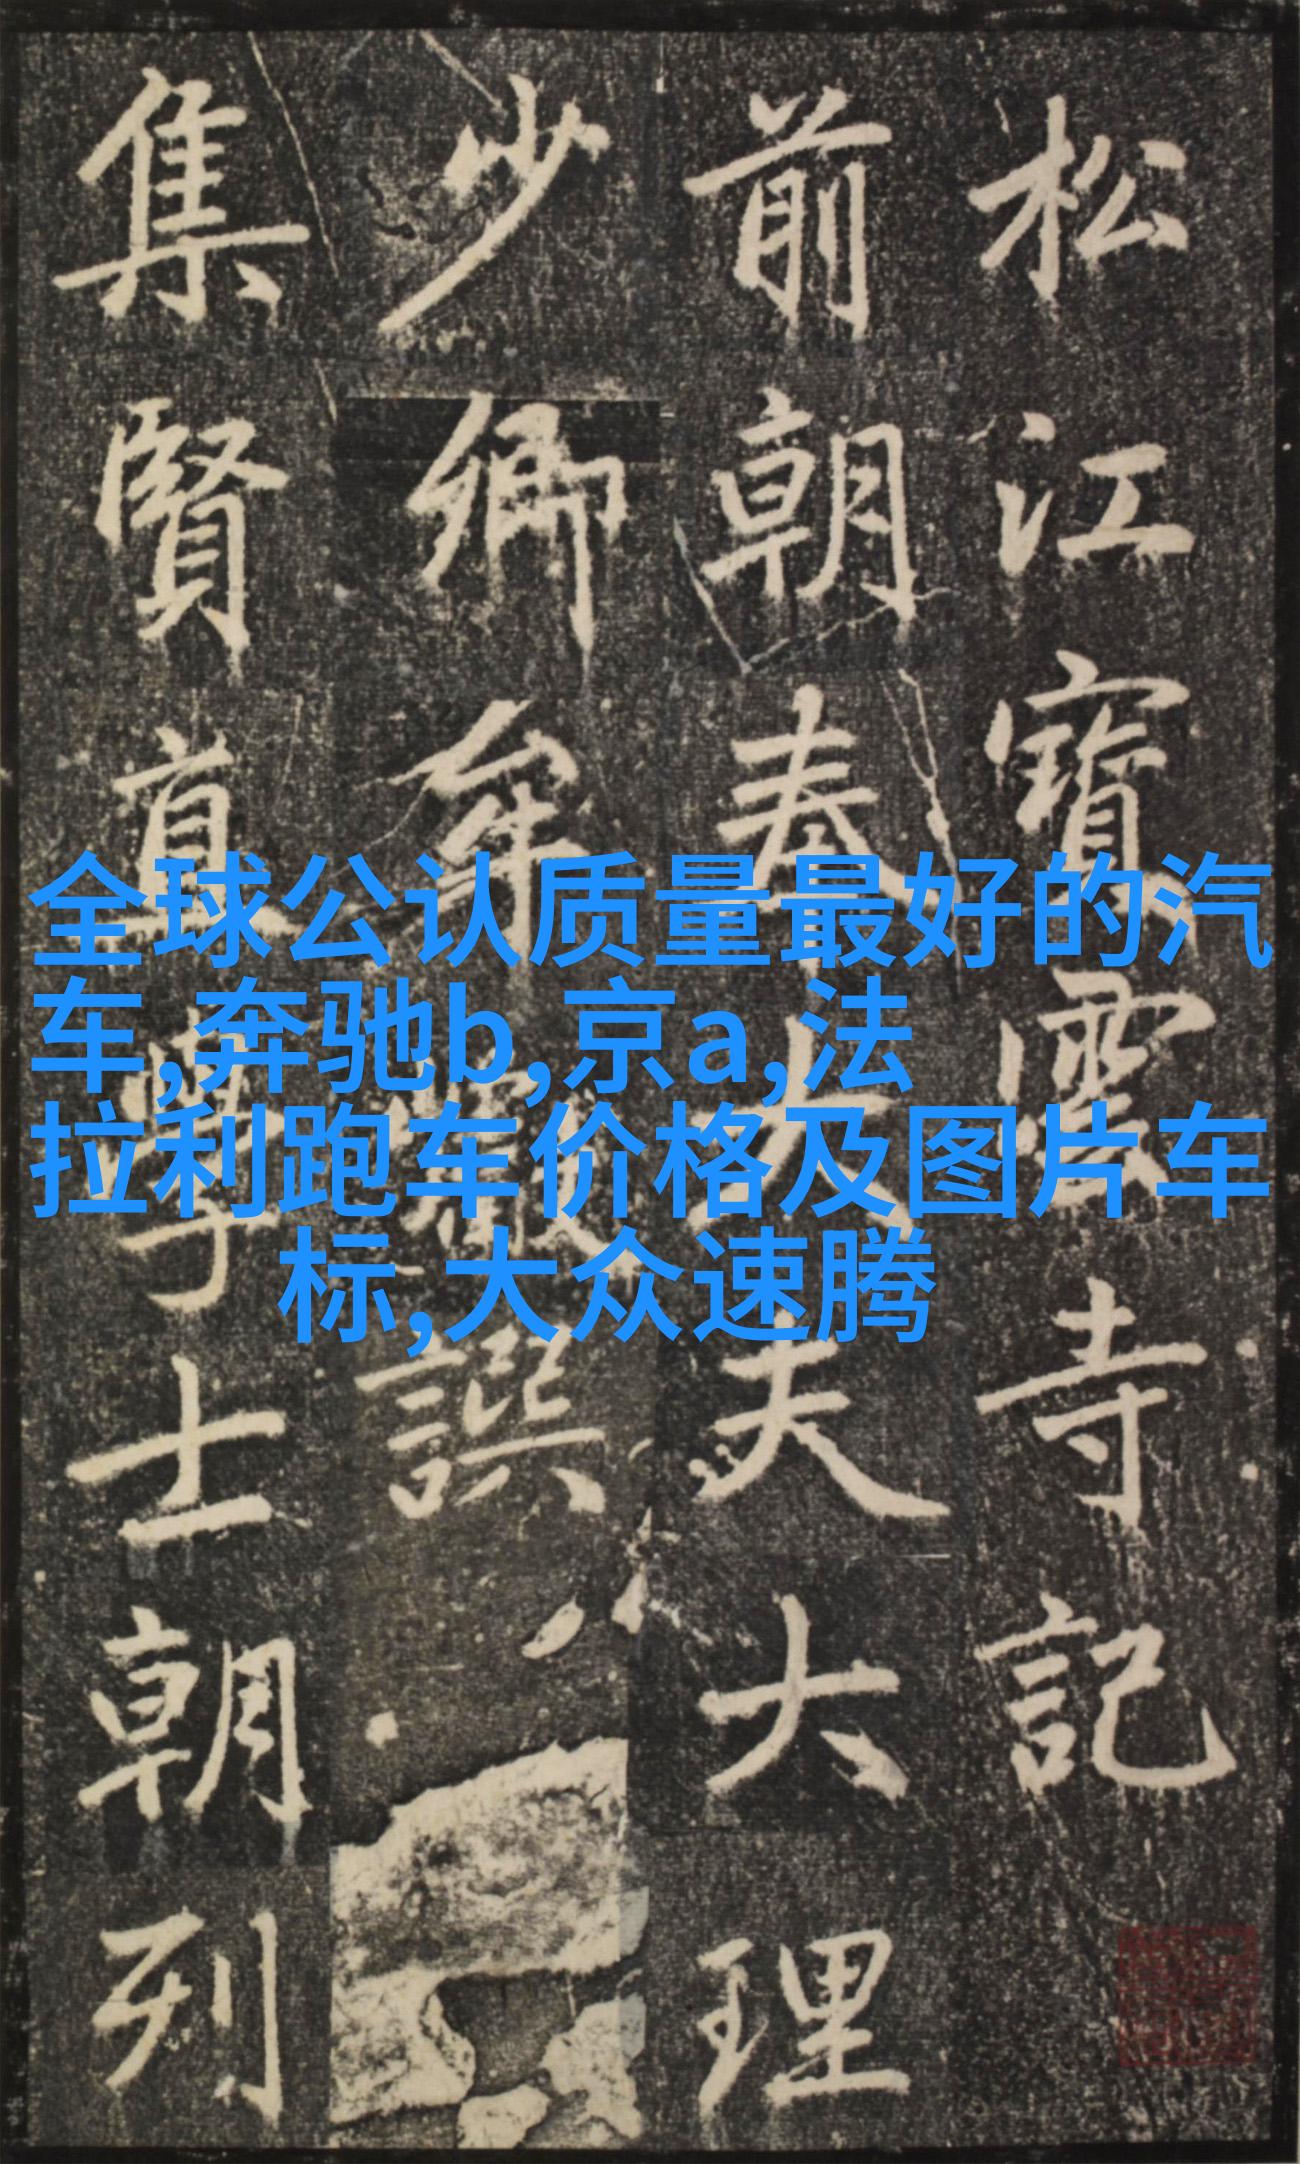 松江寶雲寺記
前朝奉大夫大理
少卿牟巘譔
集賢直學士朝列
全球公认质量最好的汽
车,奔驰b,京a,法
拉利跑车价格及图片车
标,大众速腾